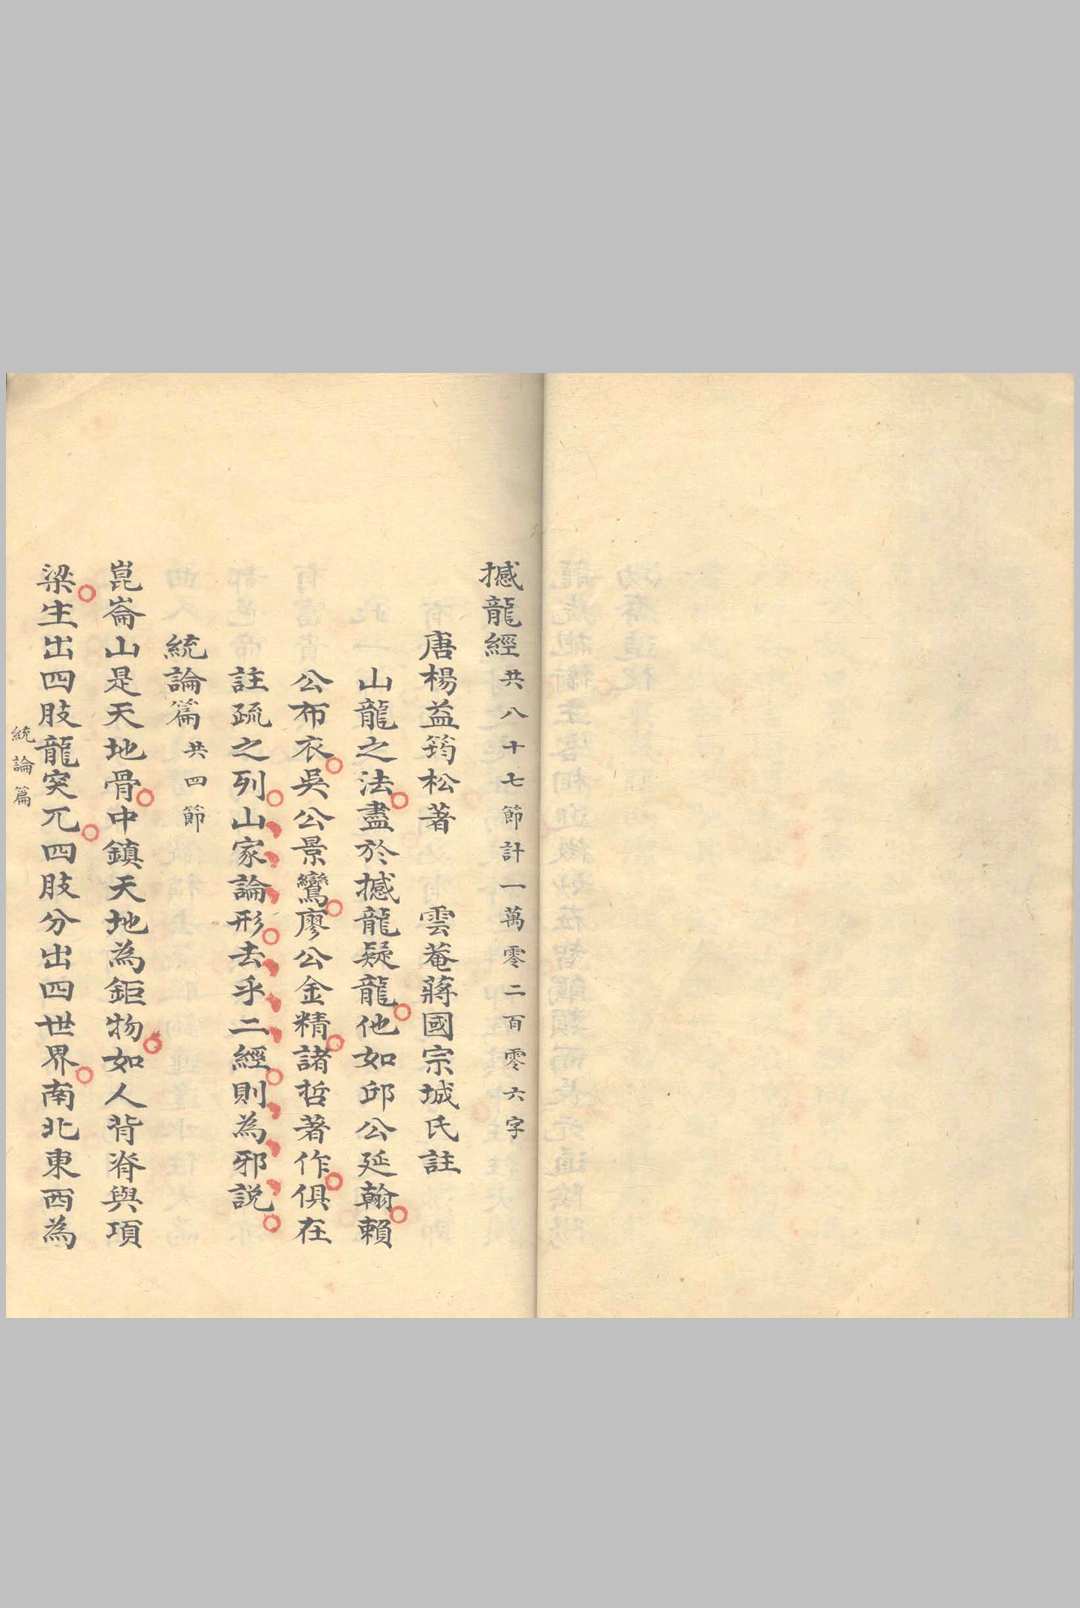 撼龍經共八十七節計一萬零二百零六字
唐楊益筠松著 雲菴蔣國宗城氏註
山龍之法盡於撼龍疑龍他如邱公延翰賴
公布衣吳公景鸞廖公金精諸哲著作俱在
註疏之列山家論形去乎二經則為邪説
統論篇共四節
崑崙山是天地骨中鎮天地為鉅物如人背脊與項
梁生出四肢龍突兀四肢分出四世界南北東西為
統論篇